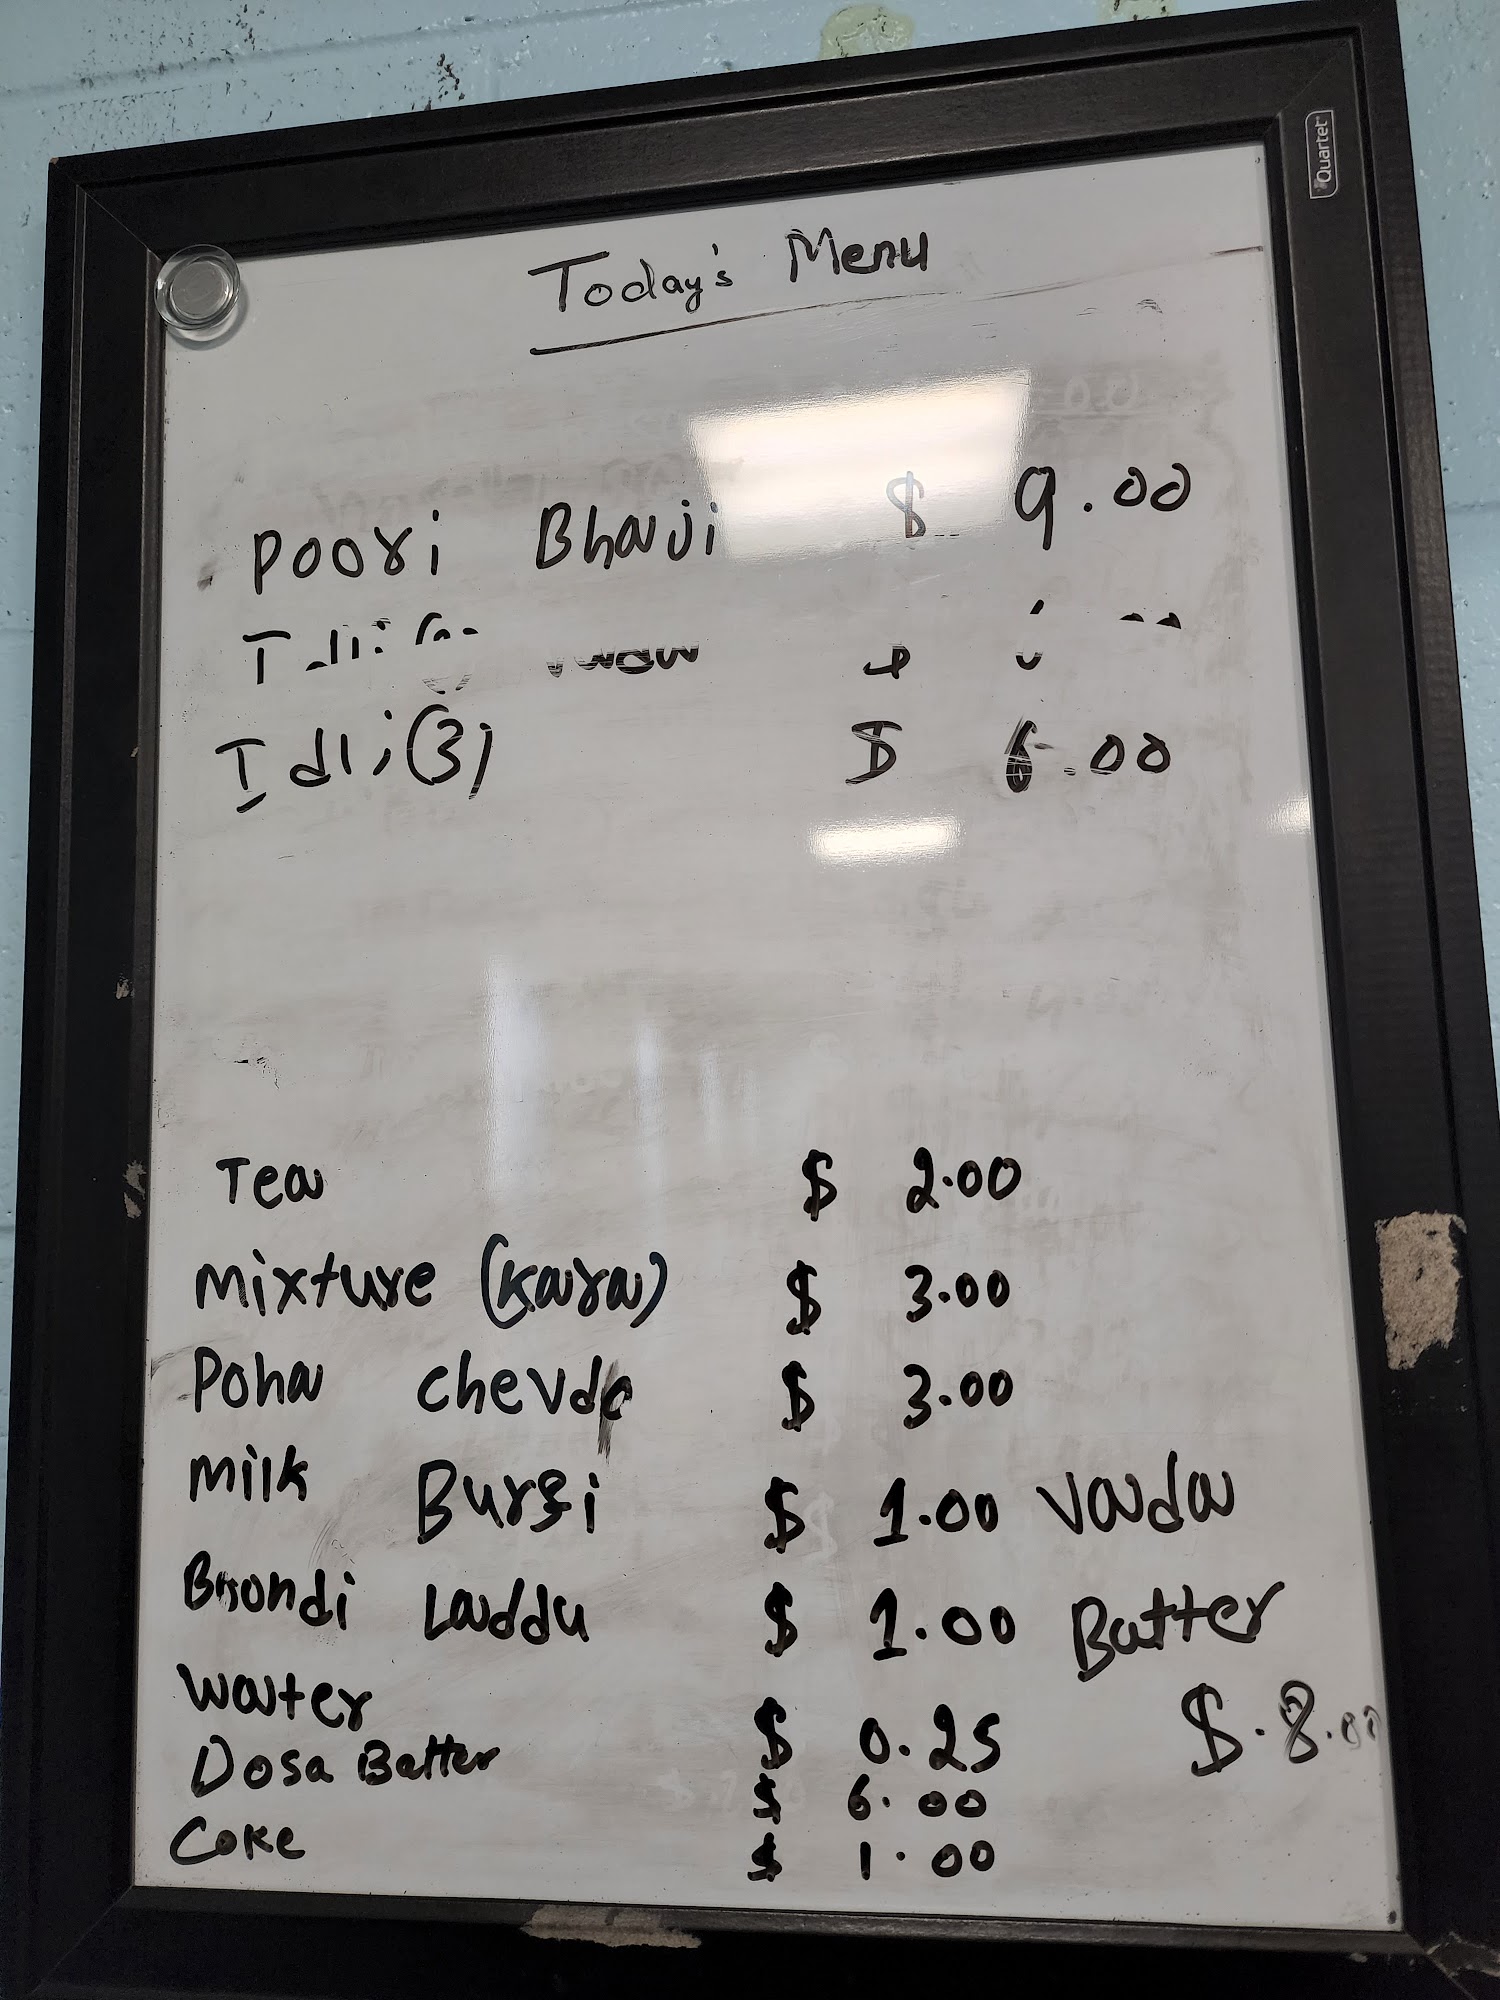 Quartet
Today's Menu
Poori Bhaji $ 9.00
Idli
Idli(3) $ 6.00
Tea $ 2.00
Mixture (Kara) $ 3.00
Poha chevda $ 3.00
Milk Burfi $ 1.00
Boondi Laddu $ 1.00
Water $ 0.25
Dosa Batter $ 6.00
Coke $ 1.00
Vada
Batter
$.8.00